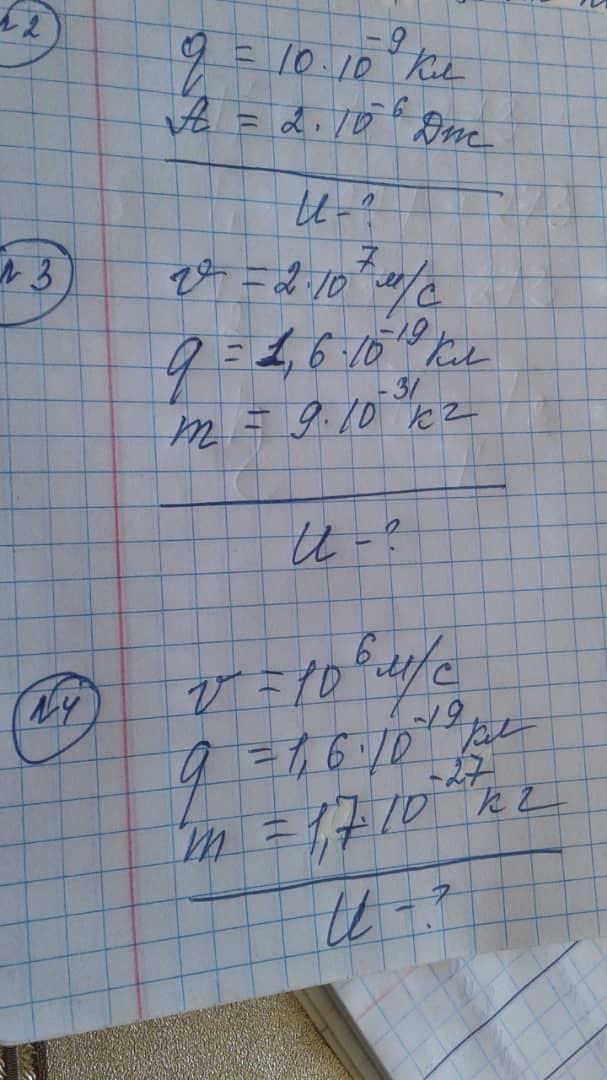 №2
q = 10·10⁻⁹ Кл
A = 2·10⁻⁶ Дж
U - ?
№3
v = 2·10⁷ м/с
q = 1,6·10⁻¹⁹ Кл
m = 9·10⁻³¹ кг
U - ?
№4
v = 10⁶ м/с
q = 1,6·10⁻¹⁹ Кл
m = 1,7·10⁻²⁷ кг
U - ?